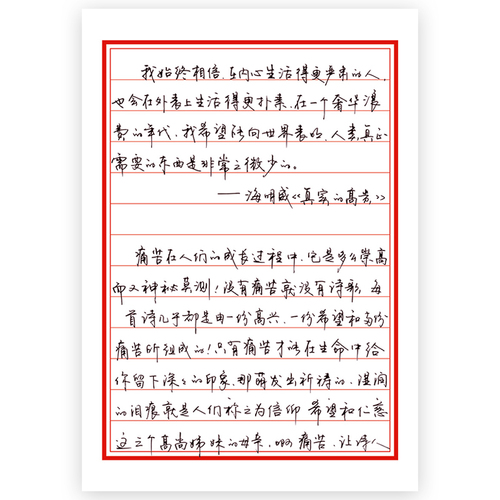 我始终相信,在内心生活得更严肃的人,
也会在外表上生活得更朴素,在一个奢华浪
费的年代,我希望能向世界表明,人类真正
需要的东西是非常之微少的。
——海明威《真实的高贵》
痛苦在人们的成长过程中,它是多么崇高
而又神秘莫测!没有痛苦就没有诗歌,每
首诗几乎都是由一份高兴,一份希望和两份
痛苦所组成的!只有痛苦才能在生命中给
你留下深深的印象,那萌发出祈祷的、湿润
的泪痕就是人们称之为信仰 希望和仁慈
这三个高尚姊妹的母亲,啊痛苦,让诗人